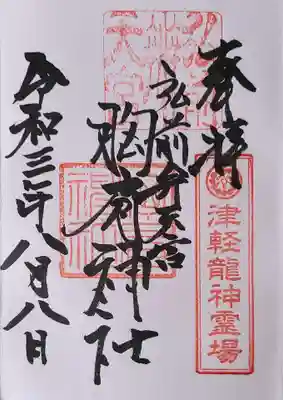 奉拝
津軽龍神霊場
弘前弁天宮
胸肩神社
令和三年八月八日